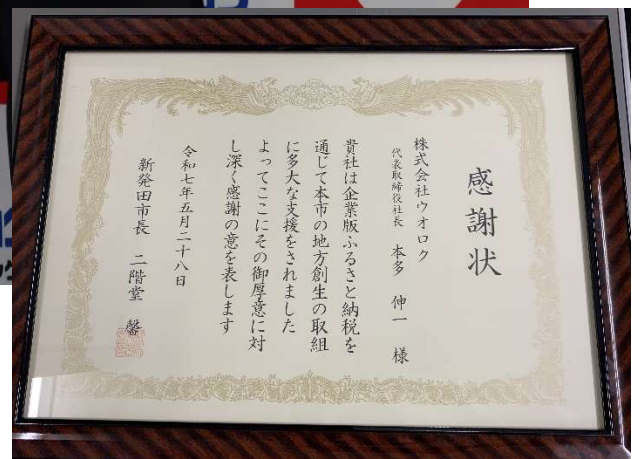 感謝状
株式会社ウオロク
代表取締役社長 本多 伸一 様
貴社は企業版ふるさと納税を
通じて本市の地方創生の取組
に多大な支援をされました
よってここにその御厚意に対
し深く感謝の意を表します
令和七年五月二十八日
新発田市長 二階堂 馨